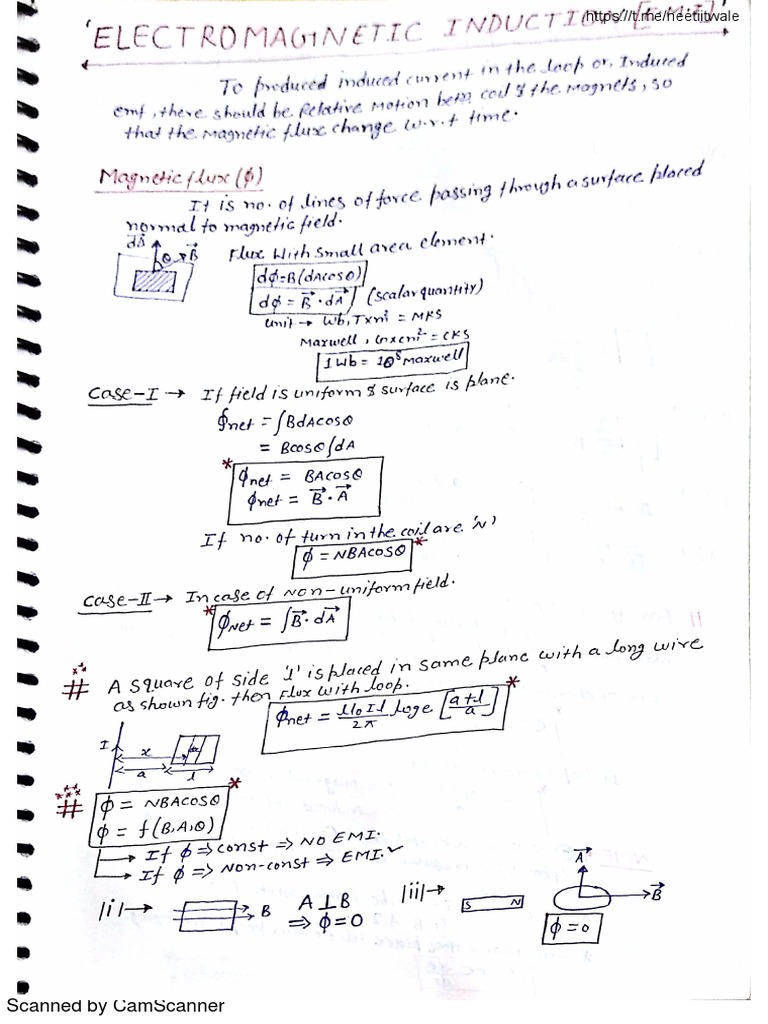 https://t.me/neetiitwale
'ELECTROMAGNETIC INDUCTION [E.M.I]'
To produced induced current in the loop or Induced
emf, there should be Relative Motion betn coil & the magnets, so
that the Magnetic flux change w.r.t time.
Magnetic flux (ϕ)
It is no. of lines of force passing through a surface placed
normal to magnetic field.
dA θ B
Flux With small area element.
dϕ=B(dAcosθ)
dϕ = B⃗ · dA⃗ (scalar quantity)
unit → Wb, T×m² = MKS
Maxwell, G×cm² = CKS
1 Wb = 10⁸ maxwell
Case-I → If field is uniform & surface is plane.
ϕnet = ∫BdAcosθ
= Bcosθ∫dA
* ϕnet = BAcosθ
ϕnet = B⃗ · A⃗
If no. of turn in the coil are 'N'
ϕ = NBAcosθ *
Case-II → In case of non-uniform field.
* ϕNet = ∫B⃗ · dA⃗
# A square of side 'l' is placed in same plane with a long wire
as shown fig. then Flux with loop.
ϕnet = μ₀Il/2π loge [a+l/a] *
I x dx
a l
# ϕ = NBACosθ *
ϕ = f(B,A,θ)
→ If ϕ ⇒ const ⇒ NO EMI.
→ If ϕ ⇒ Non-const ⇒ EMI. ✓
|i|→ B A ⊥ B
⇒ ϕ = 0
|ii|→ S N A⃗ B⃗
ϕ = 0
Scanned by CamScanner